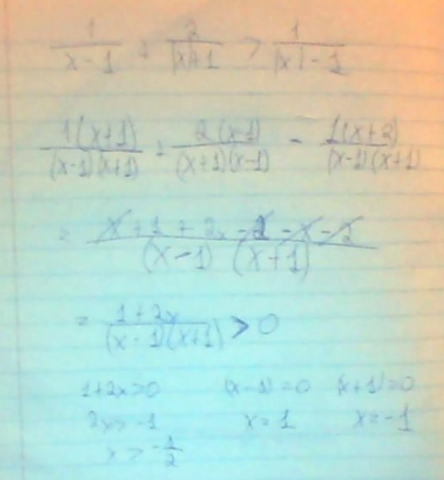 1/(x-1) + 2/(|x|+1) > 1/(|x|-1)
1(x+1)/((x-1)(x+1)) + 2(x-1)/((x+1)(x-1)) - 1(x+2)/((x-1)(x+1))
= (x+1+2x-2-x-2)/((x-1)(x+1))
= (1+2x)/((x-1)(x+1)) > 0
1+2x>0 (x-1)=0 (x+1)=0
2x>-1 x=1 x=-1
x>-1/2